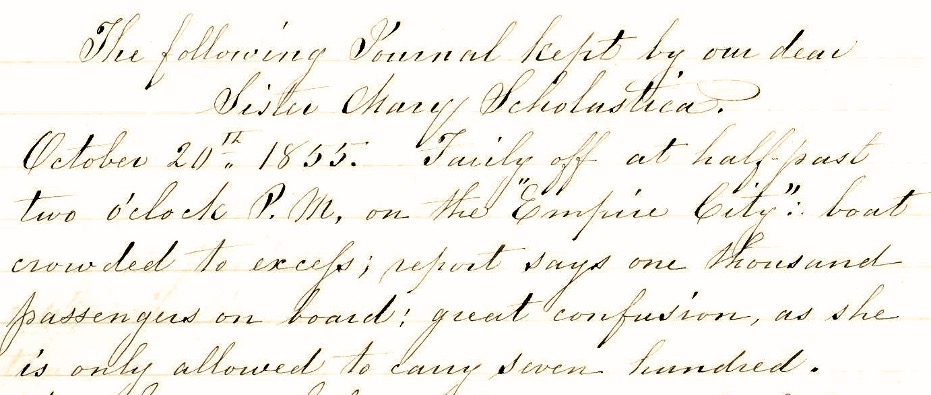 The following Journal kept by our dear
Sister Mary Scholastica.
October 20th. 1855. Fairly off at half-past
two o'clock P. M, on the "Empire City": boat
crowded to excess; report says one thousand
passengers on board: great confusion, as she
is only allowed to carry seven hundred.